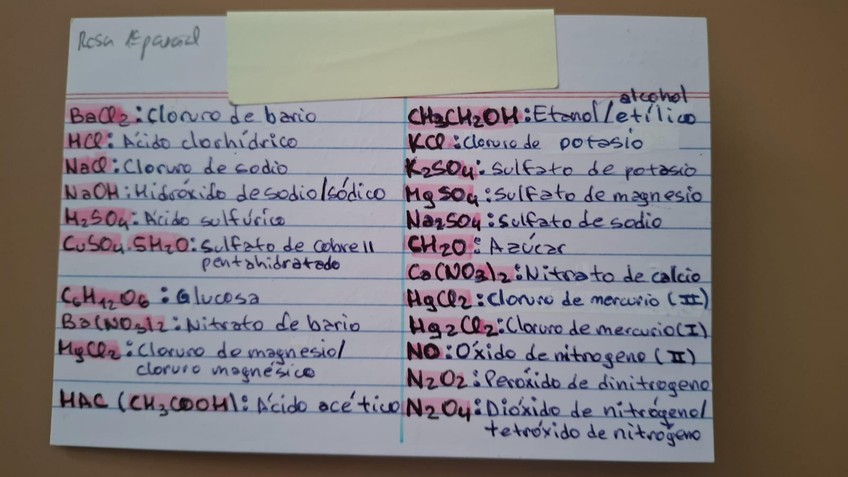 Rosa
BaCl2: Cloruro de bario
HCl: Ácido clorhídrico
NaCl: Cloruro de sodio
NaOH: Hidróxido de sodio/sódico
H2SO4: Ácido sulfúrico
CuSO4.5H2O: Sulfato de cobre II
pentahidratado
C6H12O6: Glucosa
Ba(NO3)2: Nitrato de bario
MgCl2: Cloruro de magnesio/
cloruro magnésico
HAC (CH3COOH): Ácido acético
alcohol
CH3CH2OH: Etanol/etílico
KCl: Cloruro de potasio
K2SO4: Sulfato de potasio
MgSO4: Sulfato de magnesio
Na2SO4: Sulfato de sodio
CH2O: Azúcar
Ca(NO3)2: Nitrato de calcio
HgCl2: Cloruro de mercurio (II)
Hg2Cl2: Cloruro de mercurio (I)
NO: Óxido de nitrogeno (II)
N2O2: Peróxido de dinitrogeno
N2O4: Dióxido de nitrógeno/
tetróxido de nitrógeno